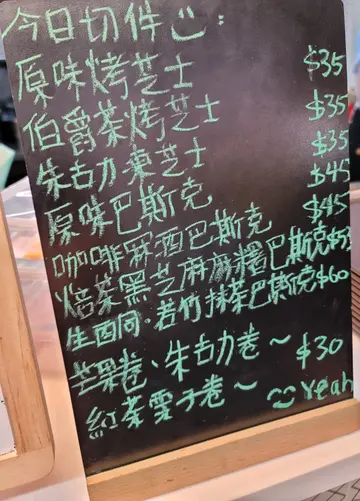 今日切件 :
原味烤芝士 $35
伯爵茶烤芝士 $35
朱古力凍芝士 $35
原味巴斯克 $45
咖啡麻酒巴斯克 $45
焙茶黑芝麻麻糬巴斯克
生酉同.若竹抹茶巴斯克$60
芒果卷、朱古力卷~ $30
紅茶雲子卷~ Yeah